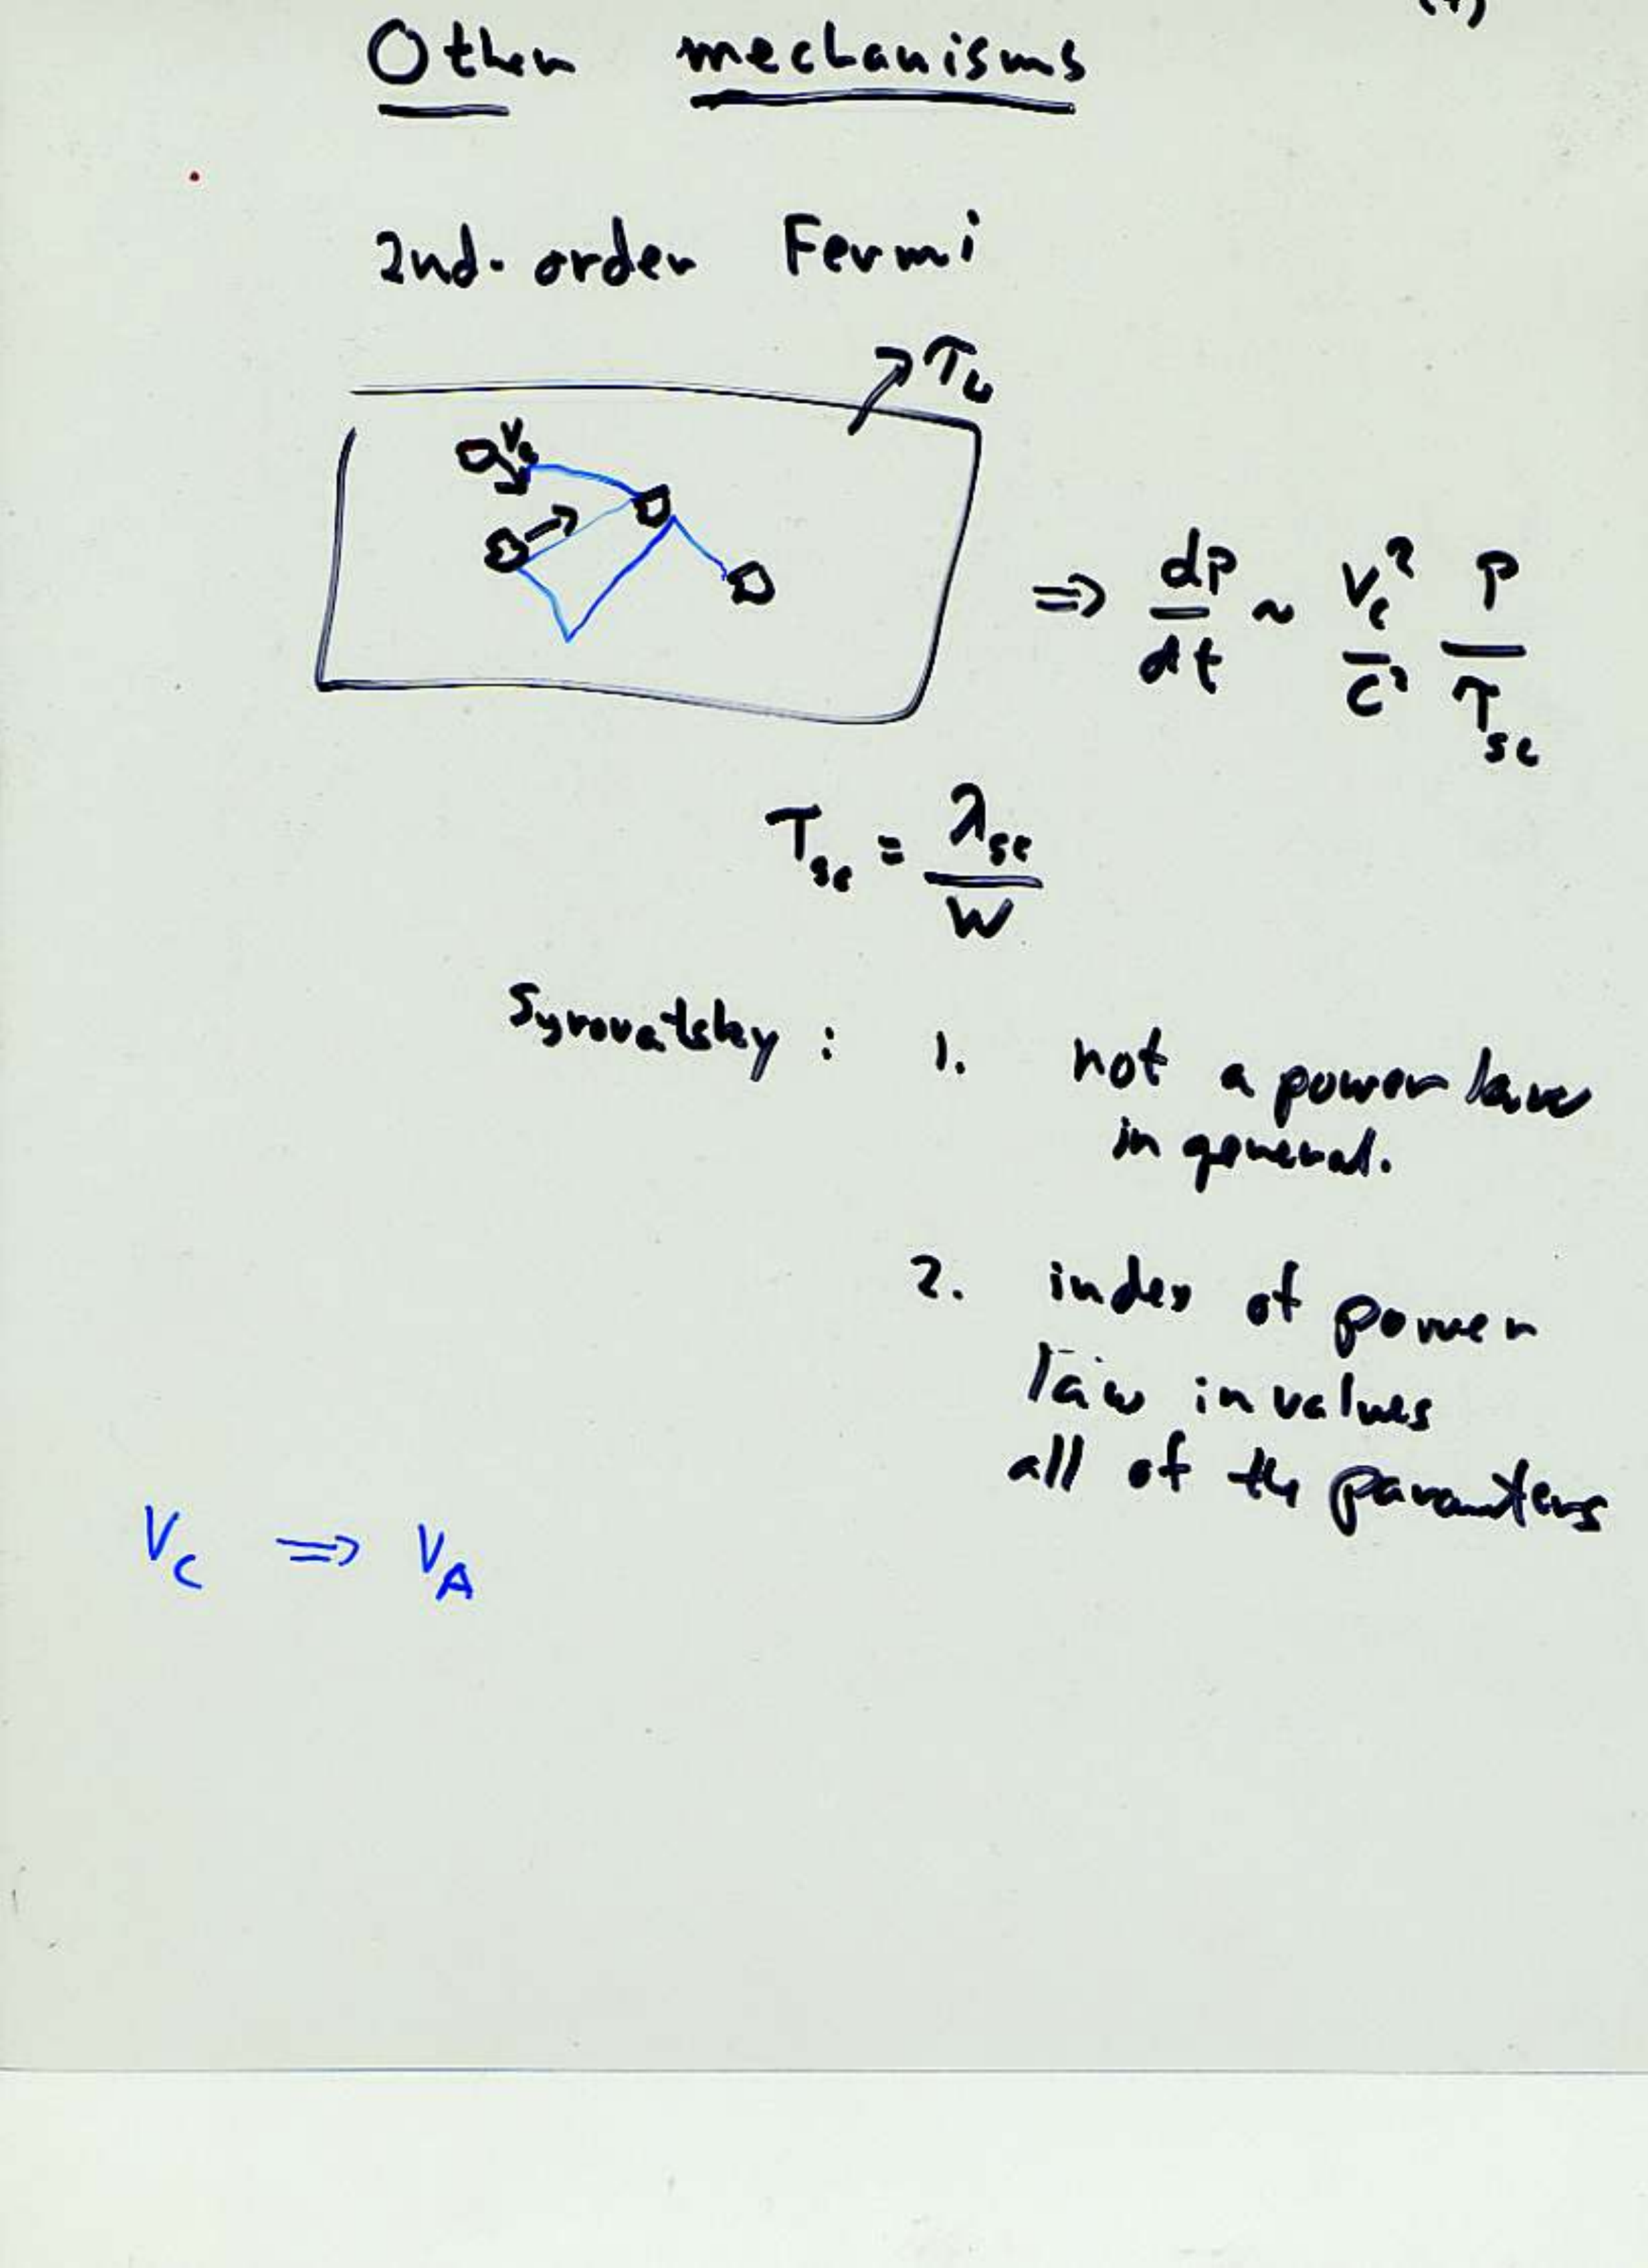 Other mechanisms
2nd-order Fermi
V_c
=> dp/dt ~ V_c²/c² p/τ_sc
τ_sc = λ_sc/w
Syrovatsky : 1. not a power law
in general.
2. index of power
law invalues
all of the parameters
V_C => V_A